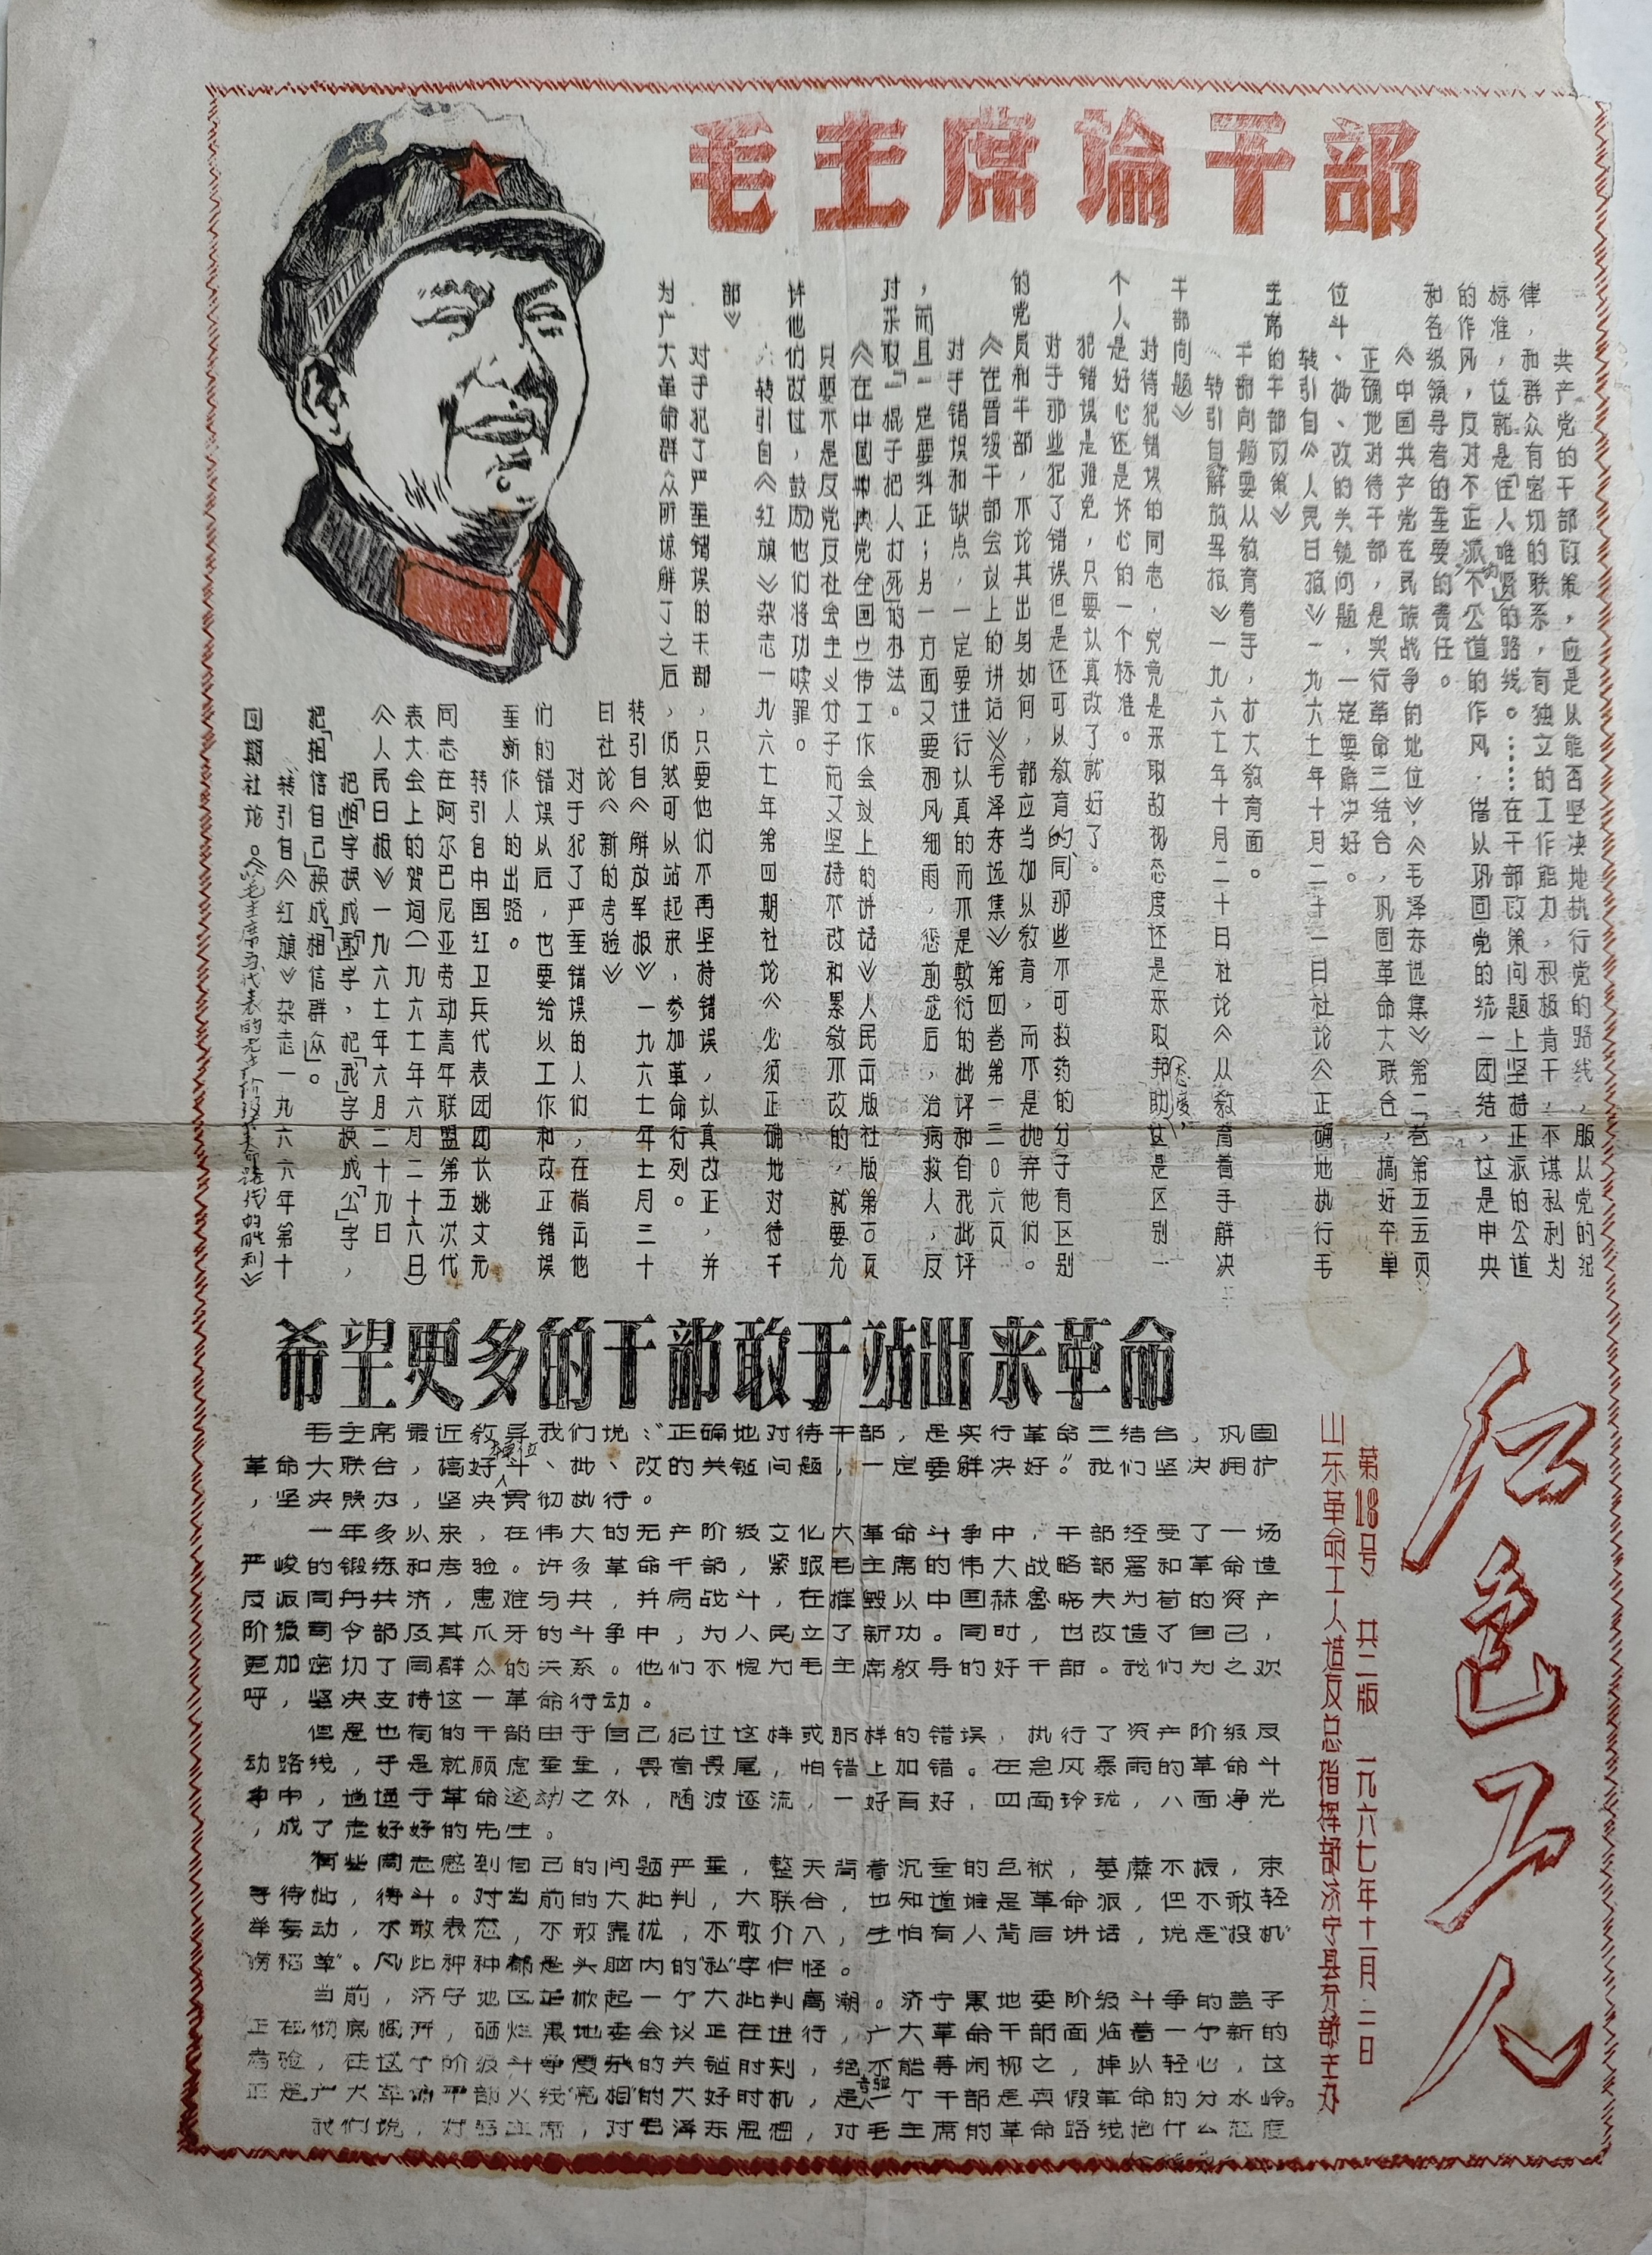 毛主席论干部
共产党的干部政策，应是从能否坚决地执行党的路线，服从党的纪
律，和群众有密切的联系，有独立的工作能力，积极肯干，不谋私利为
标准，这就是「任人唯贤」的路线。……在干部政策问题上坚持正派的公道
的作风，反对不正派不公道的作风，借以巩固党的统一团结，这是中央
和各级领导者的重要的责任。
《中国共产党在民族战争的地位》，《毛泽东选集》第二卷第五一五页
正确地对待干部，是实行革命三结合，巩固革命大联合，搞好本单
位斗、批、改的关键问题，一定要解决好。
转引自《人民日报》一九六七年十月二十一日社论《正确地执行毛
主席的干部政策》
干部问题要从教育着手，扩大教育面。
《转引自解放军报》一九六七年十月二十日社论《从教育着手解决
干部问题》
对待犯错误的同志，究竟是采取敌视态度还是采取帮助态度，这是区别一
个人是好心还是坏心的一个标准。
犯错误是难免，只要认真改了就好了。
对于那些犯了错误但是还可以教育的、同那些不可救药的分子有区别
的党员和干部，不论其出身如何，都应当加以教育，而不是抛弃他们。
《在晋绥干部会议上的讲话》《毛泽东选集》第四卷第一三０六页
对于错误和缺点，一定要进行认真的而不是敷衍的批评和自我批评
，而且一定要纠正；另一方面又要和风细雨，惩前毖后，治病救人，反
对采取「一棍子把人打死」的办法。
《在中国共产党全国宣传工作会议上的讲话》人民出版社版第
只要不是反党反社会主义分子而又坚持不改和累教不改的，就要允
许他们改过，鼓励他们将功赎罪。
转引自《红旗》杂志一九六七年第四期社论《必须正确地对待干
部》
对于犯了严重错误的干部，只要他们不再坚持错误，认真改正，并
为广大革命群众所谅解了之后，仍然可以站起来，参加革命行列。
转引自《解放军报》一九六七年七月三十
日社论《新的考验》
对于犯了严重错误的人们，在指出他
们的错误以后，也要给以工作和改正错误
重新作人的出路。
转引自中国红卫兵代表团团长姚文元
同志在阿尔巴尼亚劳动青年联盟第五次代
表大会上的贺词（一九六七年六月二十六日）
《人民日报》一九六七年六月二十九日
把「怕」字换成「敢」字，把「我」字换成「公」字，
把「相信自己」换成「相信群众」。
转引自《红旗》杂志一九六六年第十
四期社论。《以毛主席为代表的无产阶级革命路线的胜利》
红色工人
第18号 共二版 一九六七年十一月二日
山东革命工人造反总指挥部济宁县分部主办
希望更多的干部敢于站出来革命
毛主席最近教导我们说：“正确地对待干部，是实行革命三结合，巩固
革命大联合，搞好本单位斗、批、改的关键问题，一定要解决好。”我们坚决拥护
，坚决照办，坚决贯彻执行。
一年多以来，在伟大的无产阶级文化大革命斗争中，干部经受了一场
严峻的锻练和考验。许多革命干部，紧跟毛主席的伟大战略部署和革命造
反派同舟共济，患难与共，并肩战斗，在摧毁以中国赫鲁晓夫为首的资产
阶级司令部及其爪牙的斗争中，为人民立了新功。同时，也改造了自己，
更加密切了同群众的关系。他们不愧为毛主席教导的好干部。我们为之欢
呼，坚决支持这一革命行动。
但是也有的干部由于自己犯过这样或那样的错误，执行了资产阶级反
动路线，于是就顾虑重重，畏首畏尾，怕错上加错。在急风暴雨的革命斗
争中，逍遥于革命运动之外，随波逐流，一好百好，四面玲珑，八面净光
，成了老好好的先生。
有些同志感到自己的问题严重，整天背着沉重的包袱，萎靡不振，束
手待批，待斗。对当前的大批判，大联合，也知道谁是革命派，但不敢轻
举妄动，不敢表态，不敢靠拢，不敢介入，生怕有人背后讲话，说是“投机”
“捞稻草”。凡此种种都是头脑内的“私”字作怪。
当前，济宁地区正掀起一个大批判高潮。济宁黑地委阶级斗争的盖子
正在彻底揭开，砸烂黑地委会议正在进行，广大革命干部面临着一个新的
考验，在这个阶级斗争复杂的关键时刻，绝不能等闲视之，掉以轻心，这
正是广大革命干部火线“亮相”的大好时机，是考验一个干部是真假革命的分水岭。
我们说，对毛主席，对毛泽东思想，对毛主席的革命路线抱什么态度